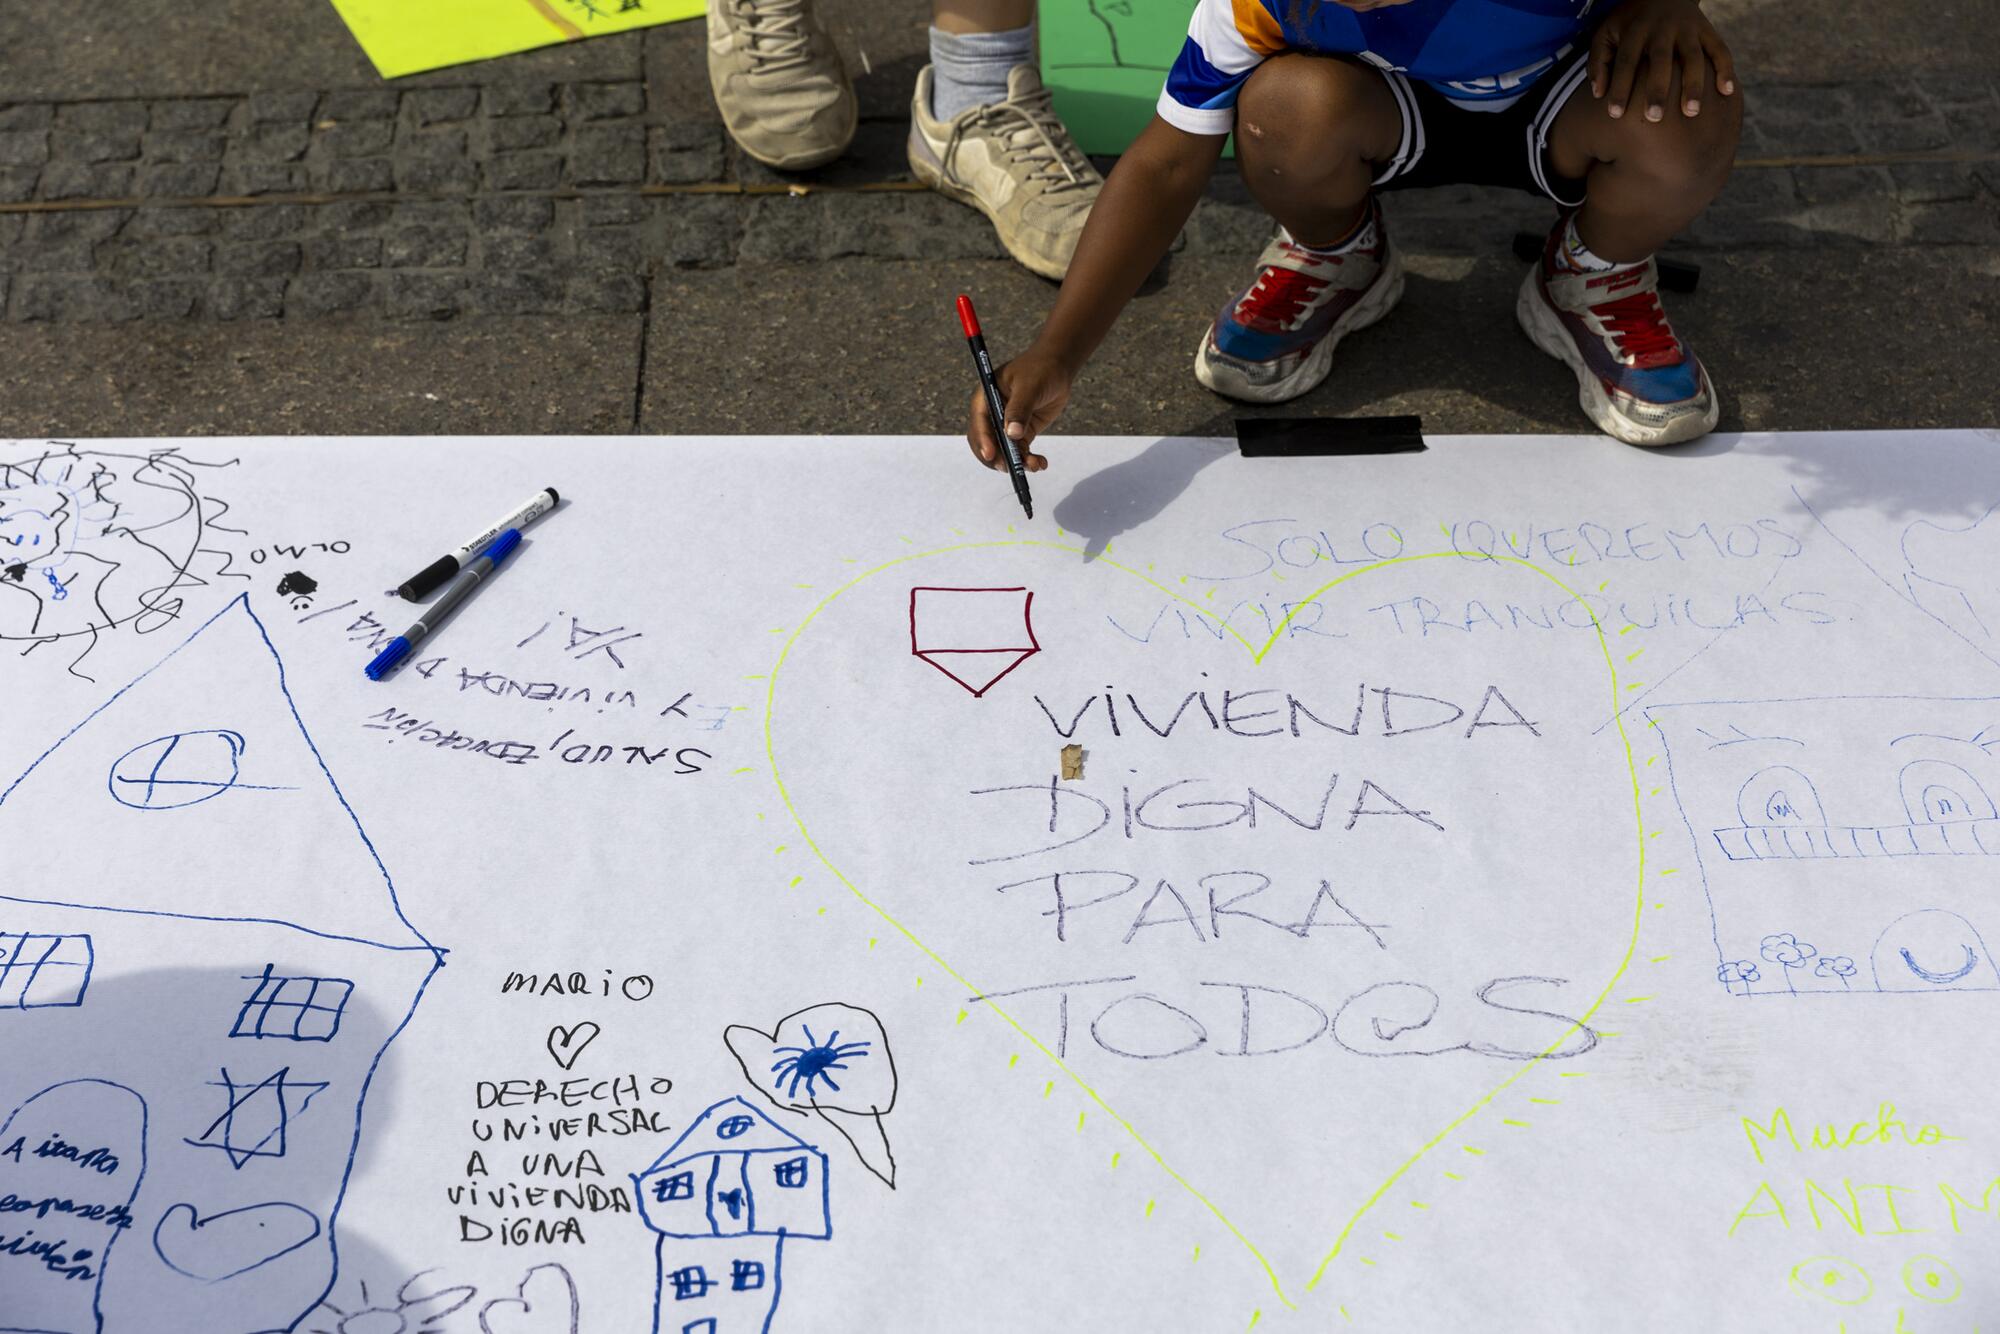 OLMO
SOLO QUEREMOS
VIVIR TRANQUILAS.
SALUD, EDUCACIÓN
Y VIVIENDA DIGNA /
¡YA!
VIVIENDA
DIGNA
PARA
TOD@S
MARIO
DERECHO
UNIVERSAL
A UNA
VIVIENDA
DIGNA
Mucho
ANIM
A
STAEDTLER